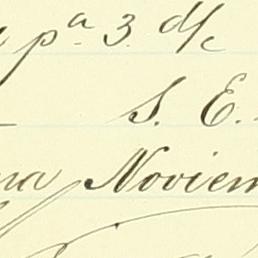 pª 3. d/c
S. E.
na Noviem